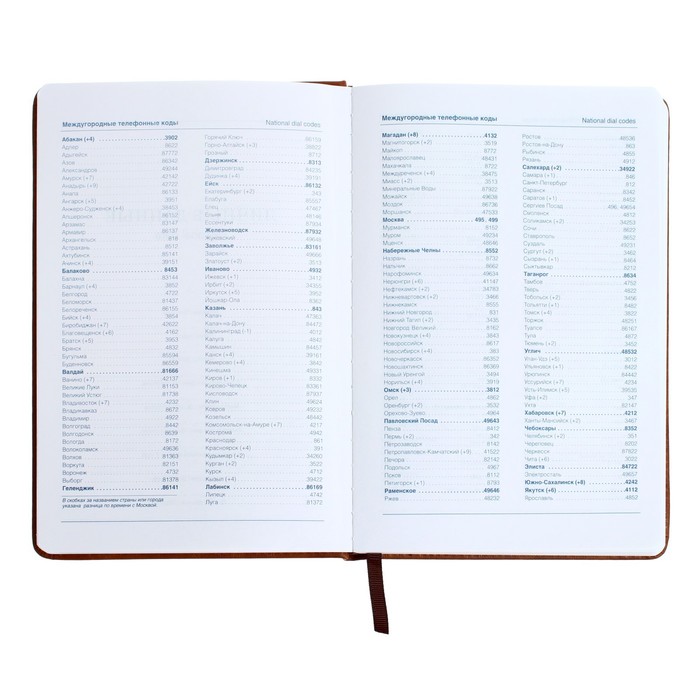 Междугородные телефонные коды National dial codes
Абакан (+4) 3902
Адлер 8622
Адыгейск 87772
Азов 86342
Александров 49244
Амурск (+7) 42142
Анадырь (+9) 42722
Анапа 86133
Ангарск (+5) 3951
Анжеро-Судженск (+4) 38453
Апшеронск 86152
Арзамас 83147
Армавир 86137
Архангельск 818
Астрахань 8512
Ахтубинск 85141
Ачинск (+4) 39151
Балаково 8453
Балахна 83144
Барнаул (+4) 3852
Белгород 4722
Беломорск 81437
Белореченск 86155
Бийск (+4) 3854
Биробиджан (+7) 42622
Благовещенск (+6) 4162
Братск (+5) 3953
Брянск 4832
Бугульма 85594
Буденновск 86559
Валдай 81666
Ванино (+7) 42137
Великие Луки 81153
Великий Устюг 81738
Владивосток (+7) 4232
Владикавказ 8672
Владимир 4922
Волгоград 8442
Волгодонск 8639
Вологда 8172
Волоколамск 49636
Волхов 81363
Воркута 82151
Воронеж 4732
Выборг 81378
Геленджик 86141
В скобках за названием страны или города
указана разница по времени с Москвой.
Горячий Ключ 86159
Горно-Алтайск (+3) 38822
Грозный 8712
Дзержинск 8313
Димитровград 84235
Дудинка (+4) 39191
Ейск 86132
Екатеринбург (+2) 343
Елабуга 85557
Елец 47467
Ельня 48146
Ессентуки 87934
Железноводск 87932
Жуковский 49648
Заволжье 83161
Зарайск 49666
Златоуст (+2) 3513
Иваново 4932
Ижевск (+1) 3412
Ирбит (+2) 34355
Иркутск (+5) 3952
Йошкар Ола 8362
Казань 843
Калач 47363
Калач-на-Дону 84472
Калининград (-1) 4012
Калуга 4842
Камышин 84457
Канск (+4) 39161
Кемерово (+4) 3842
Кинешма 49331
Киров (+1) 8332
Кирово-Чепецк 83361
Кисловодск 87937
Клин 49624
Ковров 49232
Козельск 48442
Комсомольск-на-Амуре (+7) 4217
Кострома 4942
Краснодар 861
Красноярск (+4) 391
Кудымкар (+2) 34260
Курган (+2) 3522
Курск 4712
Кызыл (+4) 39422
Лабинск 86169
Липецк 4742
Луга 81372
Междугородные телефонные коды National dial codes
Магадан (+8) 4132
Магнитогорск (+2) 3519
Майкоп 8772
Малоярославец 48431
Махачкала 8722
Междуреченск (+4) 38475
Миасс (+2) 3513
Минеральные Воды 87922
Можайск 49638
Моздок 86736
Моршанск 47533
Москва 495, 499
Мурманск 8152
Муром 49234
Мценск 48646
Набережные Челны 8552
Назрань 8732
Нальчик 8662
Нарофоминск 49634
Нерюнгри (+6) 41147
Нефтекамск (+2) 34783
Нижневартовск (+2) 3466
Нижнекамск 8555
Нижний Новгород 831
Нижний Тагил (+2) 3435
Новгород Великий 8162
Новокузнецк (+4) 3843
Новороссийск 8617
Новосибирск (+4) 383
Новочеркасск 86352
Новошахтинск 86369
Новый Уренгой 3494
Норильск (+4) 3919
Омск (+3) 3812
Орел 4862
Оренбург (+2) 3532
Орехово-Зуево 4964
Павловский Посад 49643
Пенза 8412
Пермь (+2) 342
Петрозаводск 8142
Петропавловск-Камчатский (+9) 41522
Печора 82142
Подольск 4967
Псков 8112
Пятигорск (+1) 8793
Раменское 49646
Ржев 48232
Ростов 48536
Ростов-на-Дону 863
Рыбинск 4855
Рязань 4912
Салехард (+2) 34922
Самара (+1) 846
Санкт-Петербург 812
Саранск 8342
Саратов (+1) 8452
Сергиев Посад 496, 49654
Смоленск 4812
Соликамск (+2) 34253
Сочи 8622
Ставрополь 8652
Суздаль 49231
Сургут (+2) 3462
Сызрань (+1) 8464
Сыктывкар 8213
Таганрог 8634
Тамбов 4752
Тверь 4822
Тобольск (+2) 3456
Тольятти (+1) 8482
Томск (+4) 3822
Торжок 48251
Туапсе 86167
Тула 4872
Тюмень (+2) 3452
Углич 48532
Улан Удэ (+5) 3012
Ульяновск (+1) 8422
Уренгой 34932
Уссурийск (+7) 4234
Усть-Илимск (+5) 39535
Уфа (+2) 347
Ухта 82147
Хабаровск (+7) 4212
Ханты-Мансийск (+2) 3467
Чебоксары 8352
Челябинск (+2) 351
Череповец 8202
Черкесск 87822
Чита (+6) 3022
Элиста 84722
Электросталь 49657
Южно-Сахалинск (+8) 4242
Якутск (+6) 4112
Ярославль 4852